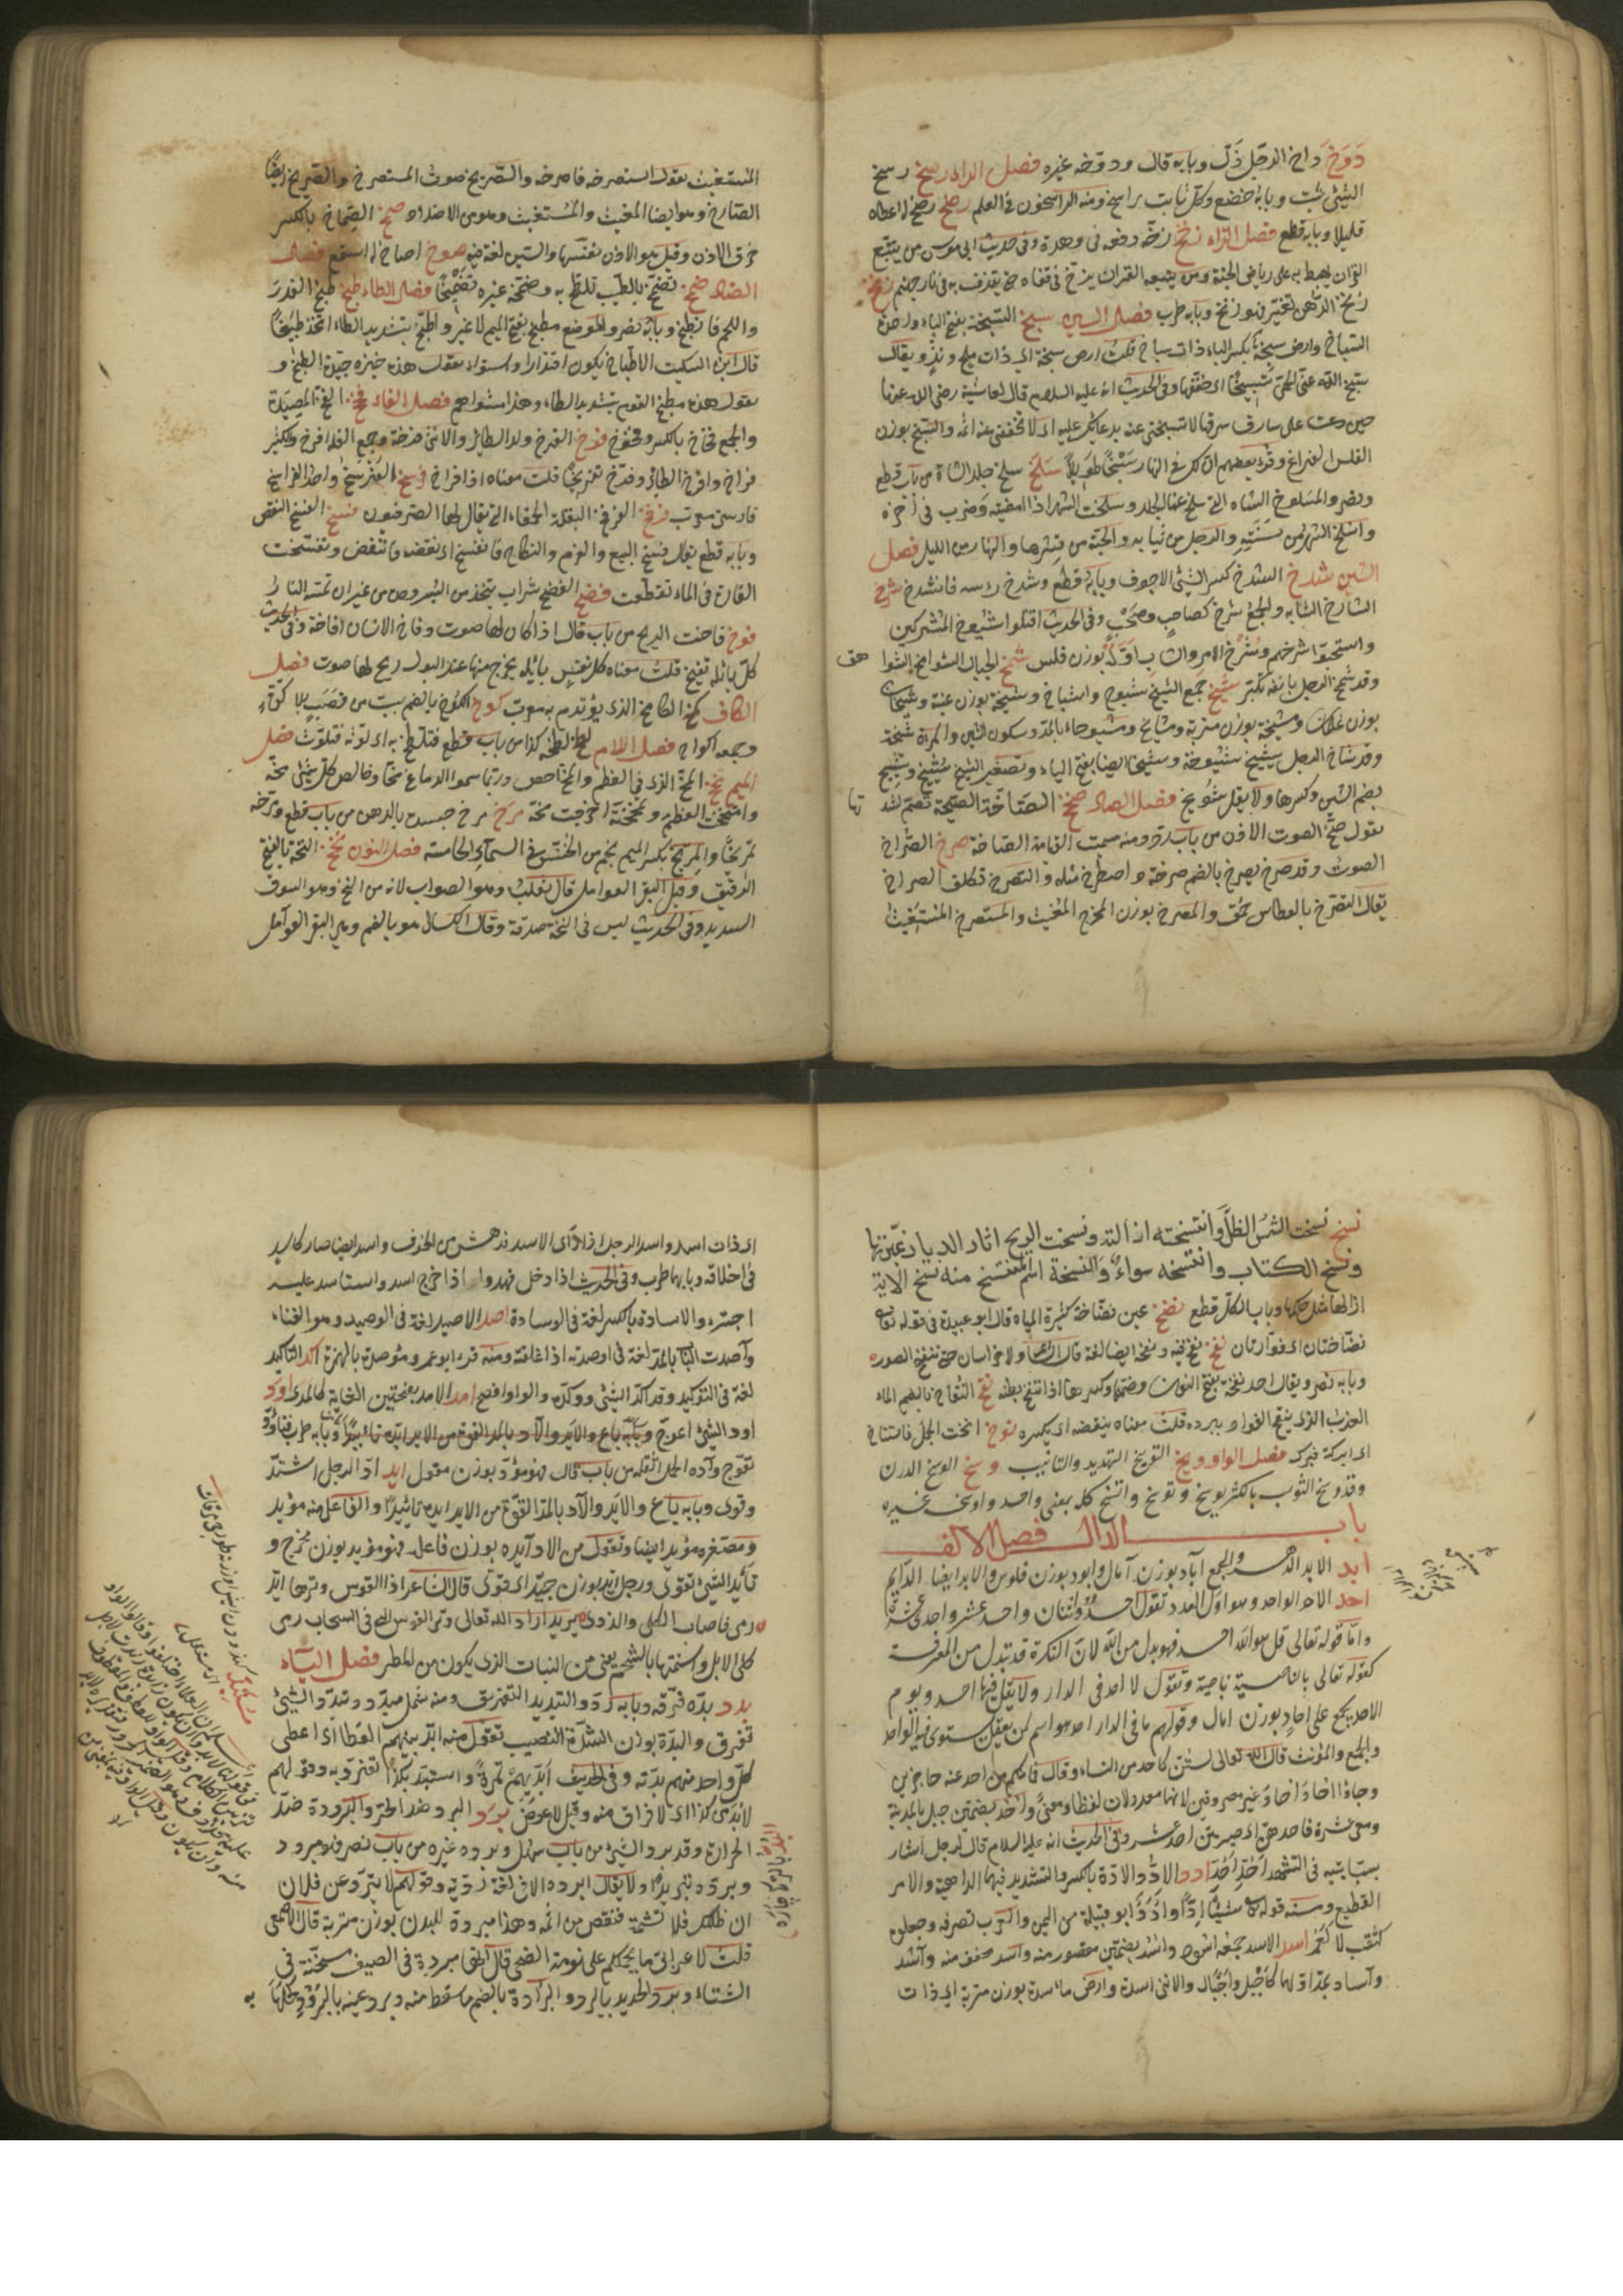 دَوَخَ دَاخ الرجل ذَلّ وبابه قال ودوّخه غيره فصل الراء رسخ رسخ
الشئ ثبت وبابه خضع وكل ثابت راسخ ومنه الراسخون في العلم رضخ رضخ له اعطاه
قليلا وبابه قطع فصل الزاء زخ زخّه دفعه في وهدة وفي حديث ابي موسى من يتبع
القرآن يهبط به على رياض الجنة ومن يتبعه القرآن يزخ في قفاه حتى يقذف به في نار جهنم زنخ
زنخ الدهن تغير فهو زنخ وبابه طرب فصل السين سبخ السبخة بفتح الباء واحدة
السباخ وارض سبخة بكسر الباء ذات سباخ قلت ارض سبخة اي ذات ملح ونز ويقال
سبّخ الله عنه الحمى تسبيخا اي خففها وفي الحديث انه عليه السلام قال لعائشة رضي الله عنها
حين دعت على سارق سرقها لا تسبخي عنه بدعائك عليه اي لا تخففي عنه اثمه والتسبخ بوزن
الفلس الفراغ وقرأ بعضهم ان لك في النهار سَبْخًا طويلاً سَلَخَ سلخ جلد الشاة من باب قطع
ونصر والمسلوخ الشاة التي سلخ عنها الجلد وسلخت الشهر اذا امضيته وصرت في آخره
وانسلخ الشهر من سنته والرجل من ثيابه والحية من قشرها والنهار من الليل فصل
الشين شدخ الشدخ كسر الشئ الاجوف وبابه قطع وشدخ رأسه فانشدخ شرخ
الشارخ الشاب والجمع شرخ كصاحب وصحب وفي الحديث اقتلوا شيوخ المشركين
واستحيوا شرخهم وشرخ الامر والشباب اوّله بوزن فلس شمخ الجبال الشوامخ الشواهق
وقد شمخ الرجل بانفه تكبر شيخ جمع الشيخ شيوخ واشياخ وشيخة بوزن عنبة وشيخان
بوزن غلمان ومشيخة بوزن متربة ومشايخ ومشيوخاء بالمد وسكون الشين والمرأة شيخة
وقد شاخ الرجل يشيخ شيخوخة وشيخا ايضا بفتح الياء وتصغير الشيخ شييخ وشييخ
بضم الشين وكسرها ولا يقل شويخ فصل الصاد صخخ الصاخة الصيحة تصم لشدتها
تقول صخّ الصوت الاذن من باب رد ومنه سميت القيامة الصاخة صرخ الصراخ
الصوت وقد صرخ يصرخ بالضم صرخة واصطرخ مثله والتصرخ تكلف الصراخ
يقال التصرخ بالعطاس حمق والمصرخ بوزن المخرج المغيث والمستصرخ المستغيث
المستغيث تقول استصرخه فاصرخه والصريخ صوت المستصرخ والصريخ ايضا
الصارخ وهو ايضا المغيث والمستغيث وهو من الاضداد صمخ الصماخ بالكسر
خرق الاذن وقيل هو الاذن نفسها والسين لغة فيه صوخ اصاخ له استمع فصل
الضاد ضمخ تضمخ بالطيب تلطخ به وضمخه غيره تضميخًا فصل الطاء طبخ طبخ القدر
واللحم فانطبخ وبابه نصر والموضع مطبخ بفتح الميم لا غير واطّبخ بتشديد الطاء اتخذ طبيخًا
قال ابن السكيت الاطباخ يكون اقتدارا واستواء تقول هذه خبزة جيدة الطبخ و
تقول هذا مطبخ القوم بتشديد الطاء وهذا مشواهم فصل الفاء فخخ الفخ المصيدة
والجمع فخاخ بالكسر وفخوخ فرخ الفرخ ولد الطائر والانثى فرخة وجمع القلة افرخ والكثير
فراخ وافرخ الطائر وفرّخ تفريخا قلت معناه اذا افراخ فرسخ الفرسخ واحد الفراسخ
فارسي معرب فرفخ الفرفخ البقلة الحمقاء التي يقال لها الفرفين فسخ الفسخ النقض
وبابه قطع يقال فسخ البيع والعزم والنكاح فانفسخ اي نقضه فانتقض وتفسخت
الفارة في الماء تقطعت فضخ الفضيخ شراب يتخذ من البسر وحده من غير ان تمسه النار
فوخ فاخت الريح من باب قال اذا كان لها صوت وفاخ الانسان افاخة وفي الحديث
كل بائلة تفيخ قلت معناه كل نفس بائلة يخرج منها عند البول ريح لها صوت فصل
الكاف كمخ الكامخ الذي يؤتدم به معرب كوخ الكوخ بالضم بيت من قصب بلا كوة
وجمعه اكواخ فصل اللام لطخ لطخه بكذا من باب قطع فتلطخ به اي لوثه فتلوث فصل
الميم مخخ المخ الذي في العظم والمخة اخص وربما سموا الدماغ مخا وخالص كل شئ مخه
وامتخخت العظم وتمخخته اخرجت مخه مرخ مرخ جسده بالدهن من باب قطع ومرّخه
تمريخًا والمريخ بكسر الميم نجم من الخنس في السماء الخامسة فصل النون نخخ النخة بالفتح
الرقيق وقيل البقر العوامل قال ثعلب وهو الصواب لانه من النخ وهو السوق
الشديد وفي الحديث ليس في النخة صدقة وقال الكسائي هو بالضم وهي البقر العوامل
نسخ نسخت الشمس الظل وانتسخته ازالته ونسخت الريح آثار الديار غيرتها
ونسخ الكتاب وانتسخه سواء والنسخة اسم المنتسخ منه نسخ الآية
ازالها مثل حكمها وباب الكل قطع نضخ عين نضاخة كثيرة المياه قال ابو عبيدة في قوله تعالى
نضاختان اي فوارتان نفخ نفخ فيه ونفخه ايضا لغة قال الشاعر ولا خراسان حتى ينفخ الصور
وبابه نصر ويقال اجد نفخة بفتح النون وضمها وكسرها اذا انتفخ بطنه نقخ النقاخ بالضم الماء
العذب الذي ينقخ الفؤاد ببرده قلت معناه ينقخه اي يكسره نوخ انخت الجمل فاستناخ
اي ابركته فبرك فصل الواو وبخ التوبيخ التهديد والتأنيب وسخ الوسخ الدرن
وقد وسخ الثوب بالكسر يوسخ وتوسخ واتسخ كله بمعنى واحد واوسخه غيره
باب الدال فصل الالف
ابد الابد الدهر والجمع آباد بوزن آمال وابود بوزن فلوس والابد ايضا الدايم
احد الاحد الواحد وهو اول العدد تقول احد واثنان واحد عشر واحدى عشرة
واما قوله تعالى قل هو الله احد فهو بدل من الله لان النكرة قد تبدل من المعرفة
كقوله تعالى بالناصية ناصية وتقول لا احد في الدار ولا يقل فيها احد ويوم
الاحد يجمع على آحاد بوزن آمال وقولهم ما في الدار احد هو اسم لمن يعقل يستوي فيه الواحد
والجمع والمؤنث قال الله تعالى لستن كاحد من النساء وقال فما منكم من احد عنه حاجزين
وجاؤا احاد احاد غير مصروفين لانهما معدولان لفظا ومعنى واحد بضمتين جبل بالمدينة
ومعي عشرة فاحدهن اي صيرهن احد عشر وفي الحديث انه عليه السلام قال لرجل اشار
بسبابتيه في التشهد احد احد ادد الاد والادة بالكسر والتشديد فيهما الداهية والامر
الفظيع ومنه قوله تعالى شيئا إدًّا وأُدَد ابو قبيلة من اليمن والعرب تصرفه وجعلوه
كثقب لا كعمر اسد الاسد جمعه اسود واسد بضمتين مقصور منه واسد مخفف منه وآسد
وآساد بمد اولهما كاجبل واجبال والانثى اسدة وارض مأسدة بوزن متربة اي ذات
اي ذات اسد واسد الرجل اذا رأى الاسد فدهش من الخوف واسد ايضا صار كالاسد
في اخلاقه وبابهما طرب وفي الحديث اذا دخل فهد واذا خرج اسد واستأسد عليه
اجترء والاسادة بالكسر لغة في الوسادة اصد الاصيد لغة في الوصيد وهو الفناء
وآصدت الباب بالمد لغة في اوصدته اذا اغلقته ومنه قرء ابو عمرو مؤصدة بالهمزة اكد التاكيد
لغة في التوكيد وقد اكد الشئ ووكده والواو افصح امد الامد بفتحتين الغاية كالمدى اود
اود الشئ اعوج وبابه طرب وتأود
تعوج وآده الحمل اثقله من باب قال فهو مؤد بوزن مقول ايد آد الرجل اشتد
وقوي وبابه باع والايد والآد بالمد القوة من الايد ايده تاييدا والفاعل منه مؤيد
ومصغره مؤيد ايضا وتقول من الاد آيده بوزن فاعله فهو مؤيد بوزن مخرج و
تأيد الشئ تقوى ورجل ايد بوزن جيد اي قوي قال الشاعر اذا القوس وترها ايد
رمى فاصاب الكلى والذرى يريد اذا الله تعالى وتر القوس التي في السحاب رمى
كلى الابل واسنمتها بالشحم يعني من النبات الذي يكون من المطر فصل الباء
بدد بده فرقه وبابه رد والتبديد التفريق ومنه شمل مبدد وتبدد الشئ
تفرق والبدة بوزن الشدة النصيب تقول منه ابد بينهم العطا اي اعطى
كل واحد منهم بدته وفي الحديث ابديهم تمرة تمرة واستبد بكذا تفرد به وقولهم
لا بد من كذا اي لا فراق منه وقيل لا عوض برد البرد ضد الحر والبرودة ضد
الحرارة وقد برد الشئ من باب سهل وبرده غيره من باب نصر فهو مبرود
وبرده تبريدا ولا يقال ابرده الا في لغة ردية وقولهم لا تبرد عن فلان
ان ظلمك فلا تشتمه فتنقص من اثمه وهذا مبردة للبدن بوزن متربة قال الاصمعي
قلت لاعرابي ما يحملكم على نومة الضحى قال انها مبردة في الصيف مسخنة في
الشتاء وبرد الحديد بالمبرد والبرادة بالضم ما سقط منه وبرد عينه بالبرود كحلها به